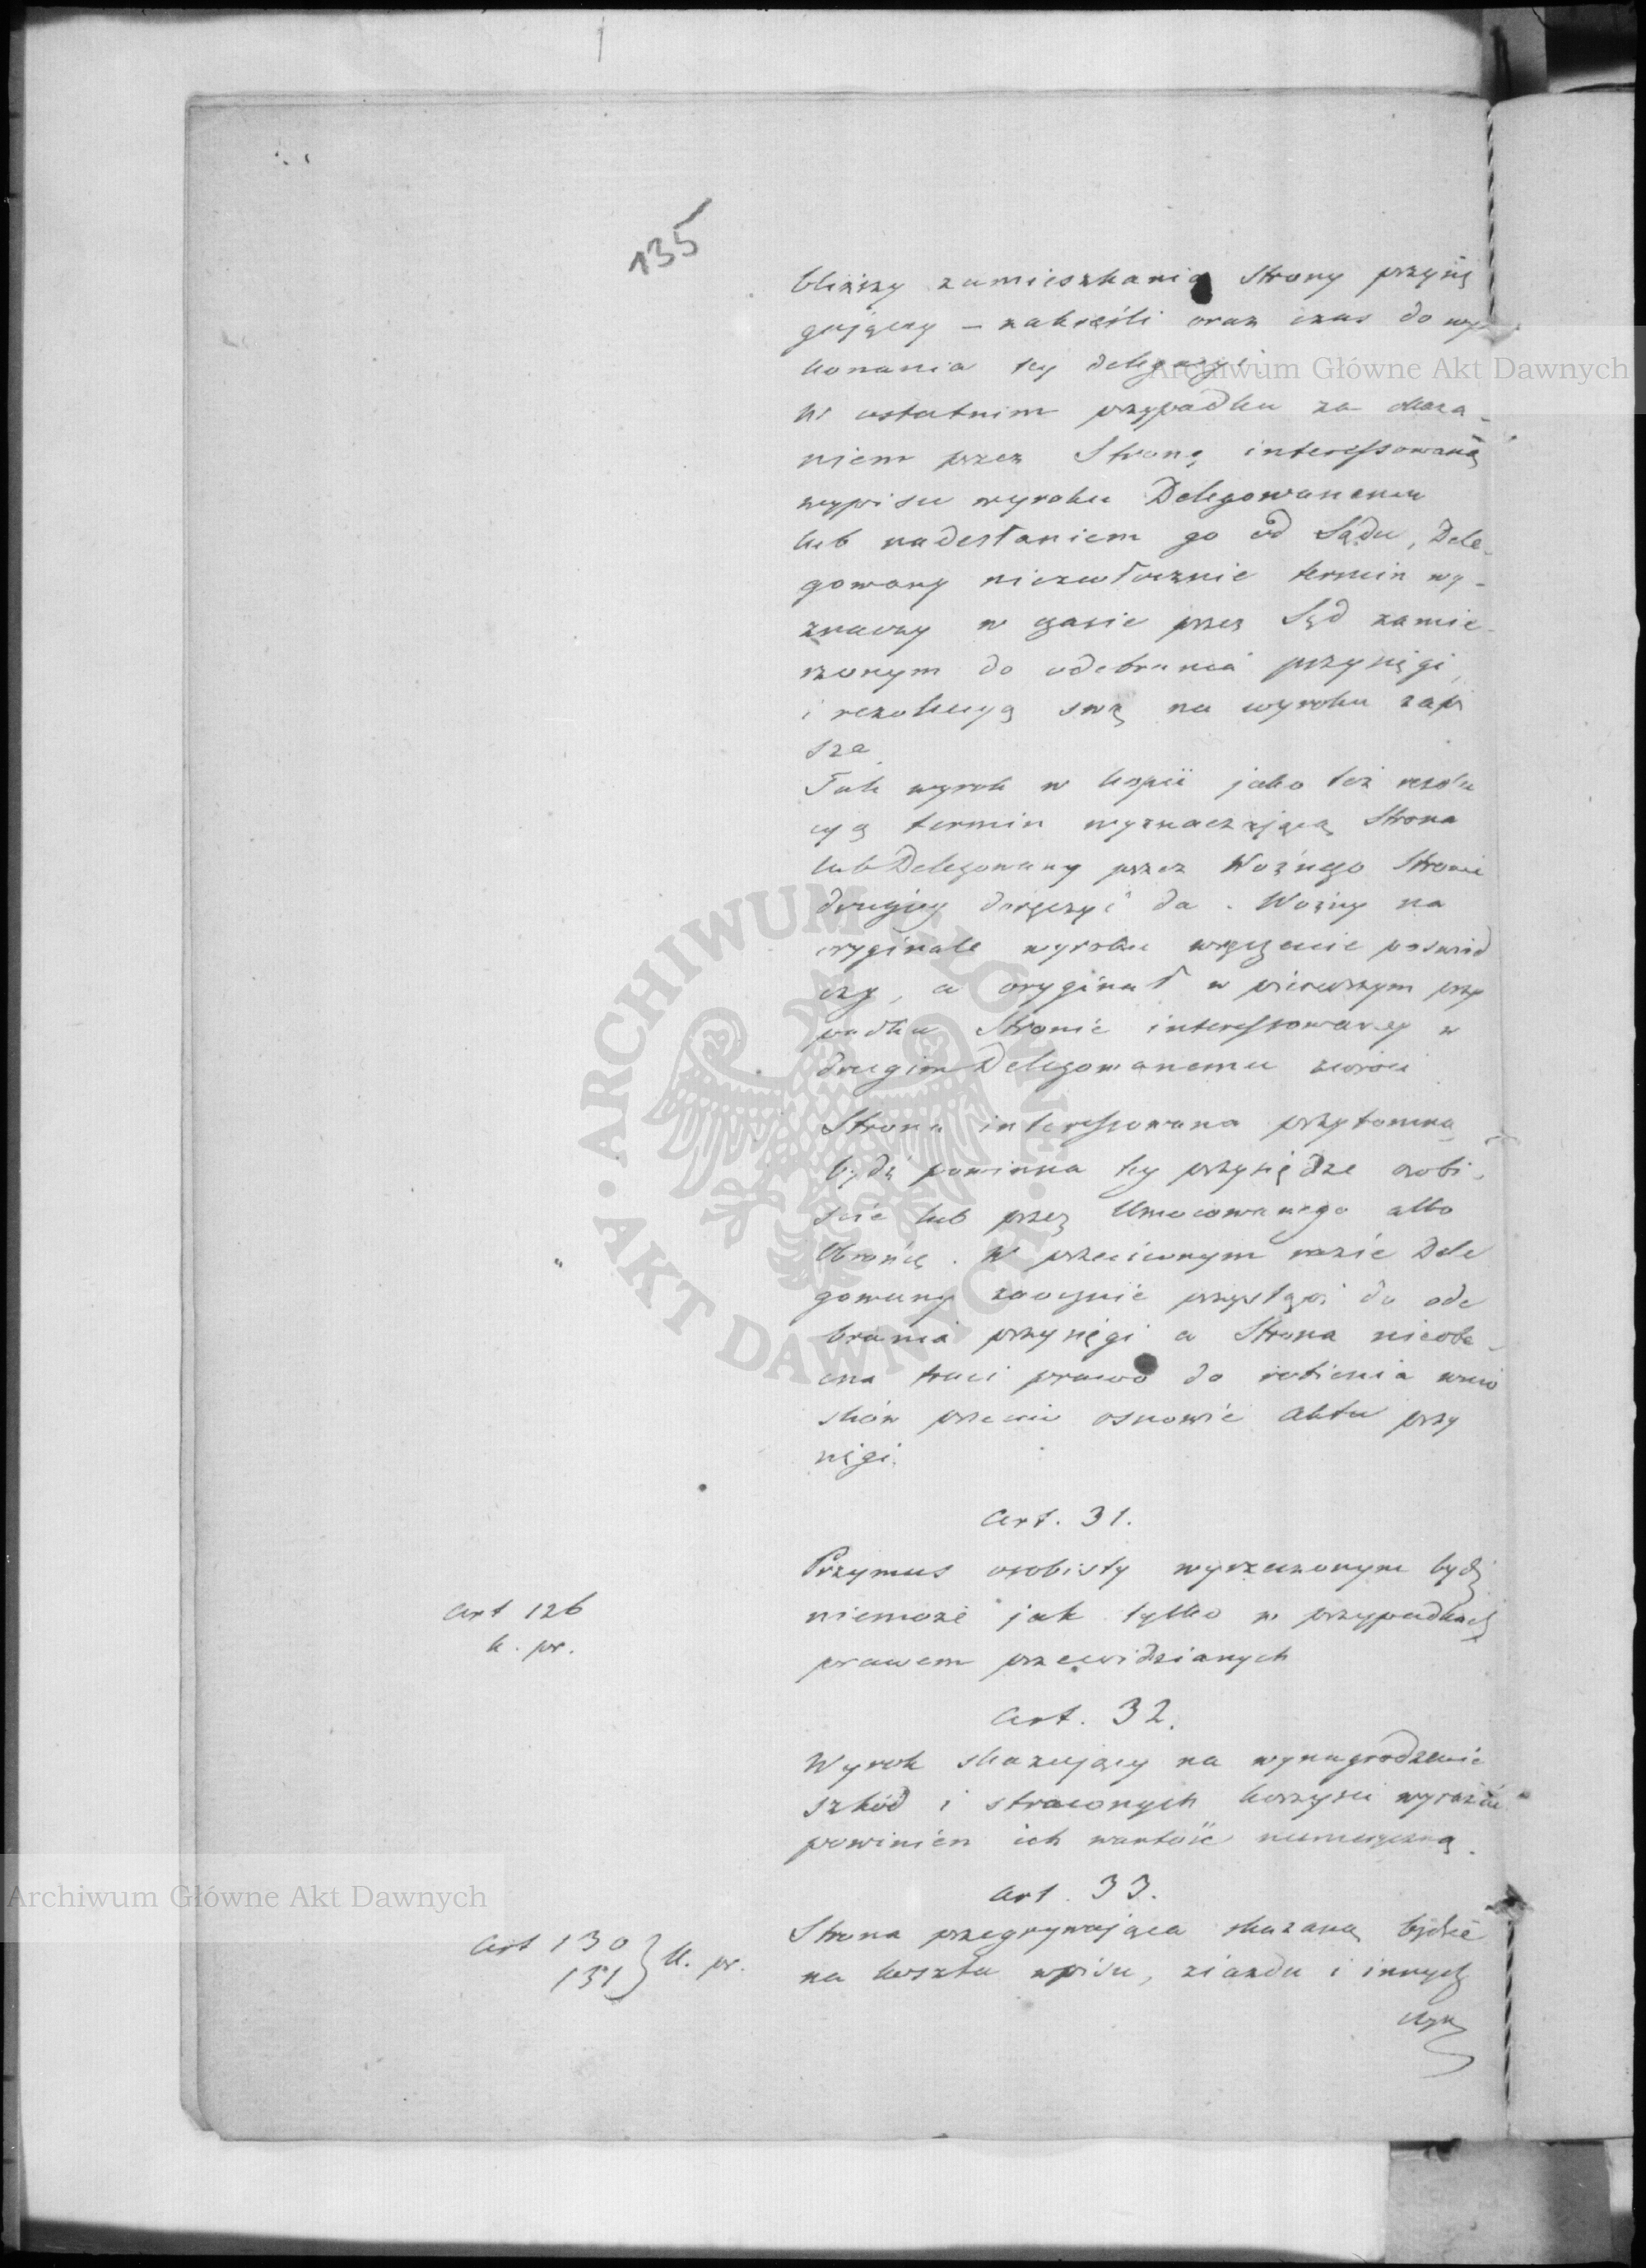 135
bliższy zamieszkania Strony przysię
gający – zakreśli oraz czas do wy
konania tey delegacyi
W ostatnim przypadku za okaza-
niem przez Stronę interessowaną
wypisu wyroku Delegowanemu
lub nadesłaniem go od Sądu, Dele-
gowany niezwłocznie termin wy-
znaczy w czasie przez Sąd zamie-
rzonym do odebrania przysięgi,
i rezolucyą swą na wyroku zapi
sze
Tak wyrok w kopii jako też rezolu
cyą termin wyznaczającą Strona
lub Delegowany przez Woźnego Stronie
drugiey doręczyć da. Woźny na
oryginale wyroku wręczenie poświad
czy, a oryginał w pierwszym przy
padku Stronie interessowaney w
drugim Delegowanemu zwróci
Strona interessowana przytomną
bydź powinna tey przysiędze osobi-
ście lub przez Umocowanego albo
Obrońcę. W przeciwnym razie Dele
gowany zaocznie przystąpi do ode
brania przysięgi a Strona nieobe-
cna traci prawo do robienia wnio
sków przeciw osnowie aktu przy
sięgi.
Art. 31.
Przymus osobisty wyrzeczonym bydź
Art 126
k. pr.
niemoże jak tylko w przypadkach
prawem przewidzianych
Art. 32.
Wyrok skazujący na wynagrodzenie
szkód i straconych korzyści wyrazić
powinien ich wartość numeryczną.
Art. 33.
Art 130
131 } k. pr.
Strona przegrywająca skazaną będzie
na koszta wpisu, ziazdu i innych
Archiwum Główne Akt Dawnych
Archiwum Główne Akt Dawnych
ARCHIWUM GŁÓWNE AKT DAWNYCH